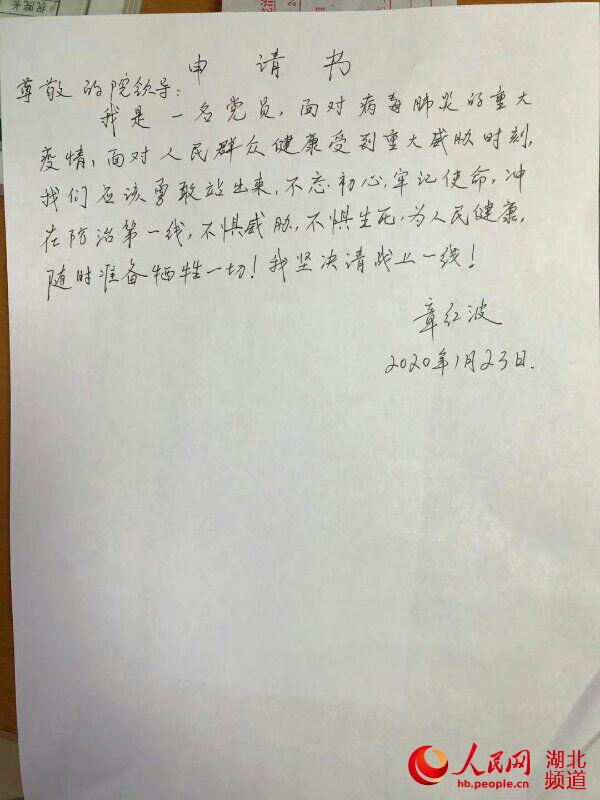 申请书
尊敬的院领导:
我是一名党员，面对病毒肺炎的重大
疫情，面对人民群众健康受到重大威胁时刻，
我们应该勇敢站出来，不忘初心，牢记使命，冲
在防治第一线，不惧威胁，不惧生死，为人民健康，
随时准备牺牲一切！我坚决请战上一线！
章红波
2020年1月23日.
人民网 湖北
hb.people.cn 频道